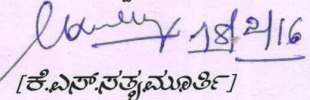 18/2/16
[ಕೆ.ಎಸ್.ಸತ್ಯಮೂರ್ತಿ]